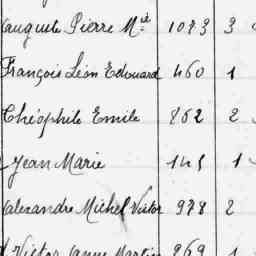 auguste Pierre Mie 1073 3
François Léon Edouard 460 1
Théophile Emile 262 2
Jean Marie 145 1
alexandre Michel Victor 978 2
Victor Martin 269 1